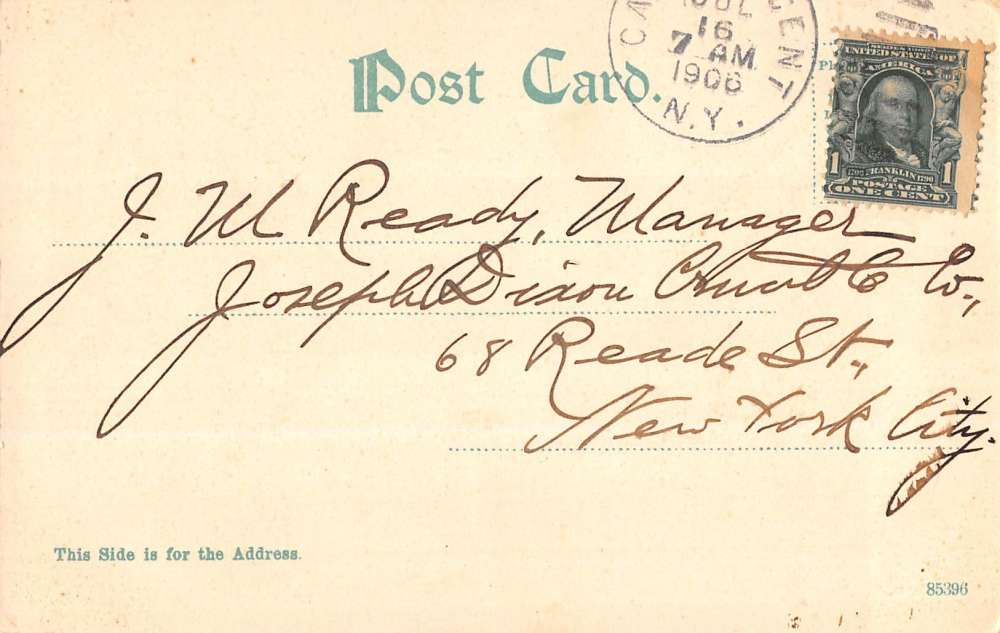 Post Card.
JUL
16
7 AM
1906
N.Y.
SERIES 1902
UNITED STATES OF
AMERICA
1 1706 FRANKLIN 1790 1
POSTAGE
ONE CENT
J. M Ready, Manager
Joseph Dixon Crucible Co.,
68 Reade St.,
New York City.
This Side is for the Address.
85396